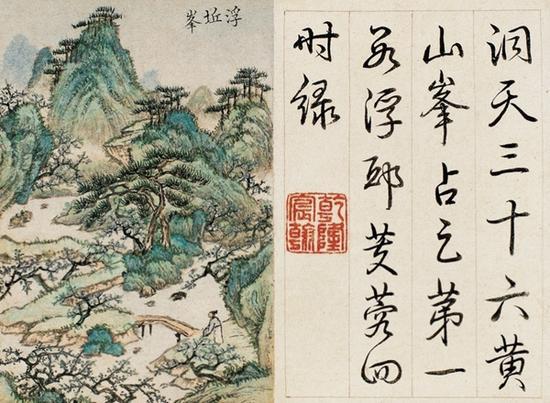 洞天三十六黄
山峯占之苐一
名浮邱芙蓉四
时绿
乾隆
宸翰
浮坵峯